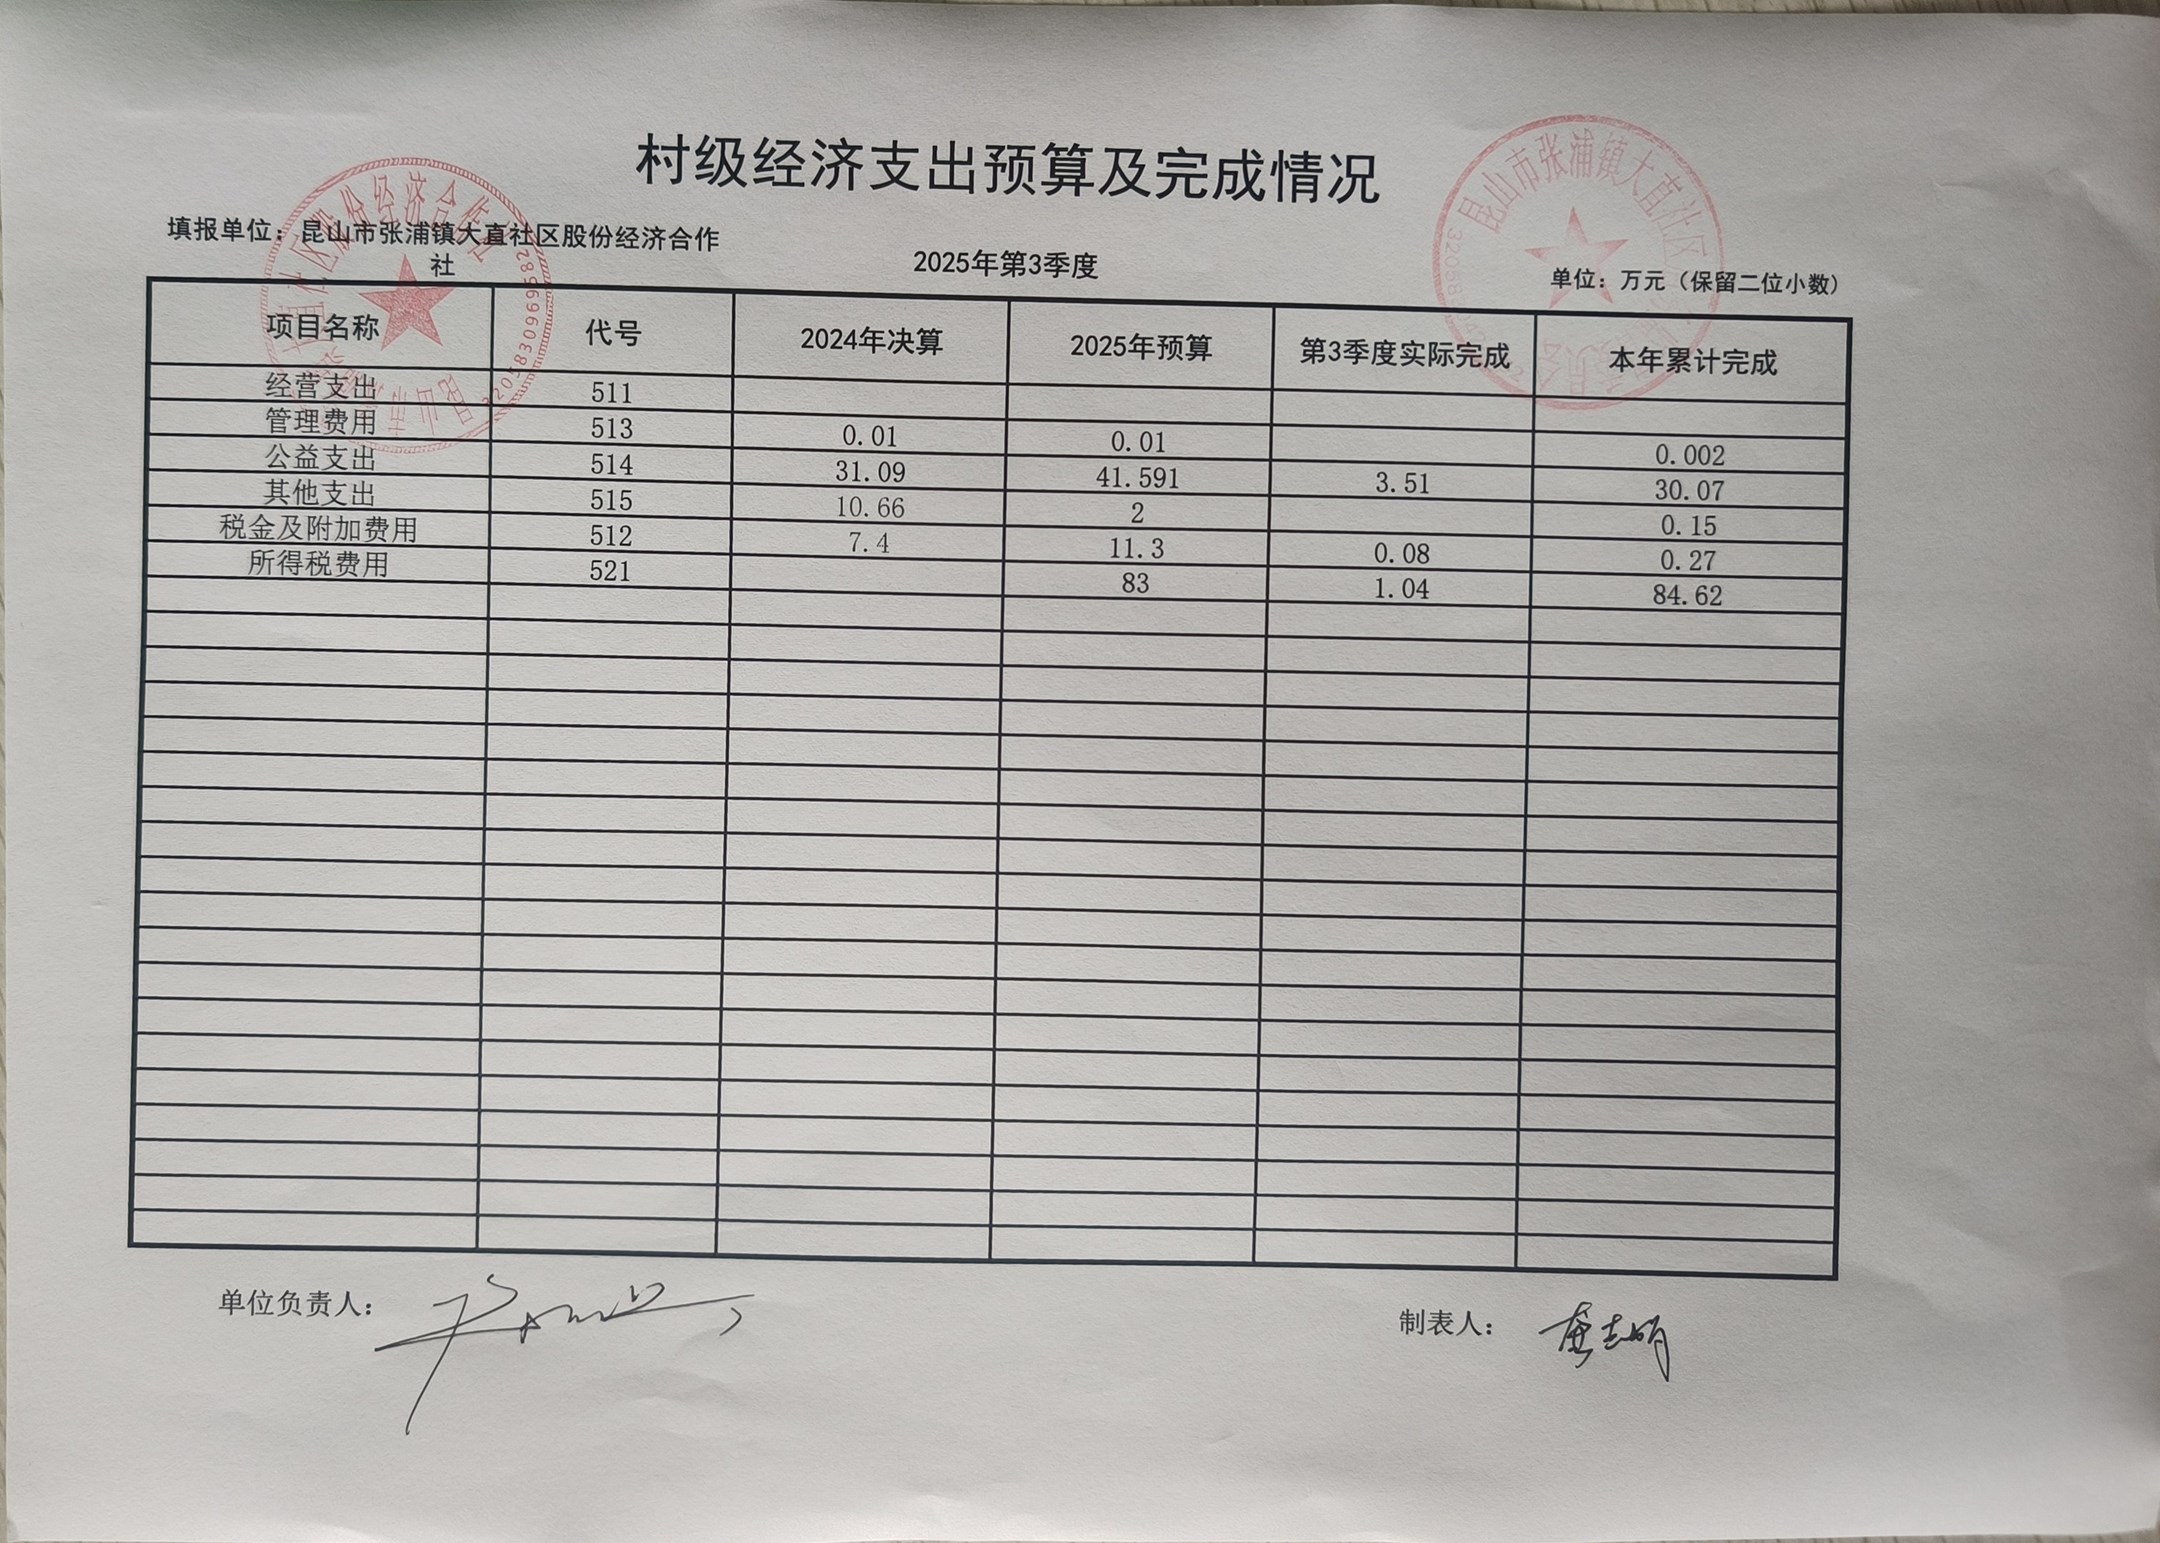 村级经济支出预算及完成情况
填报单位：昆山市张浦镇大直社区股份经济合作
社
2025年第3季度
单位：万元（保留二位小数）
项目名称 代号 2024年决算 2025年预算 第3季度实际完成 本年累计完成
经营支出 511
管理费用 513 0.01 0.01 0.002
公益支出 514 31.09 41.591 3.51 30.07
其他支出 515 10.66 2 0.15
税金及附加费用 512 7.4 11.3 0.08 0.27
所得税费用 521 83 1.04 84.62
单位负责人：
制表人：
昆山市张浦镇大直社区